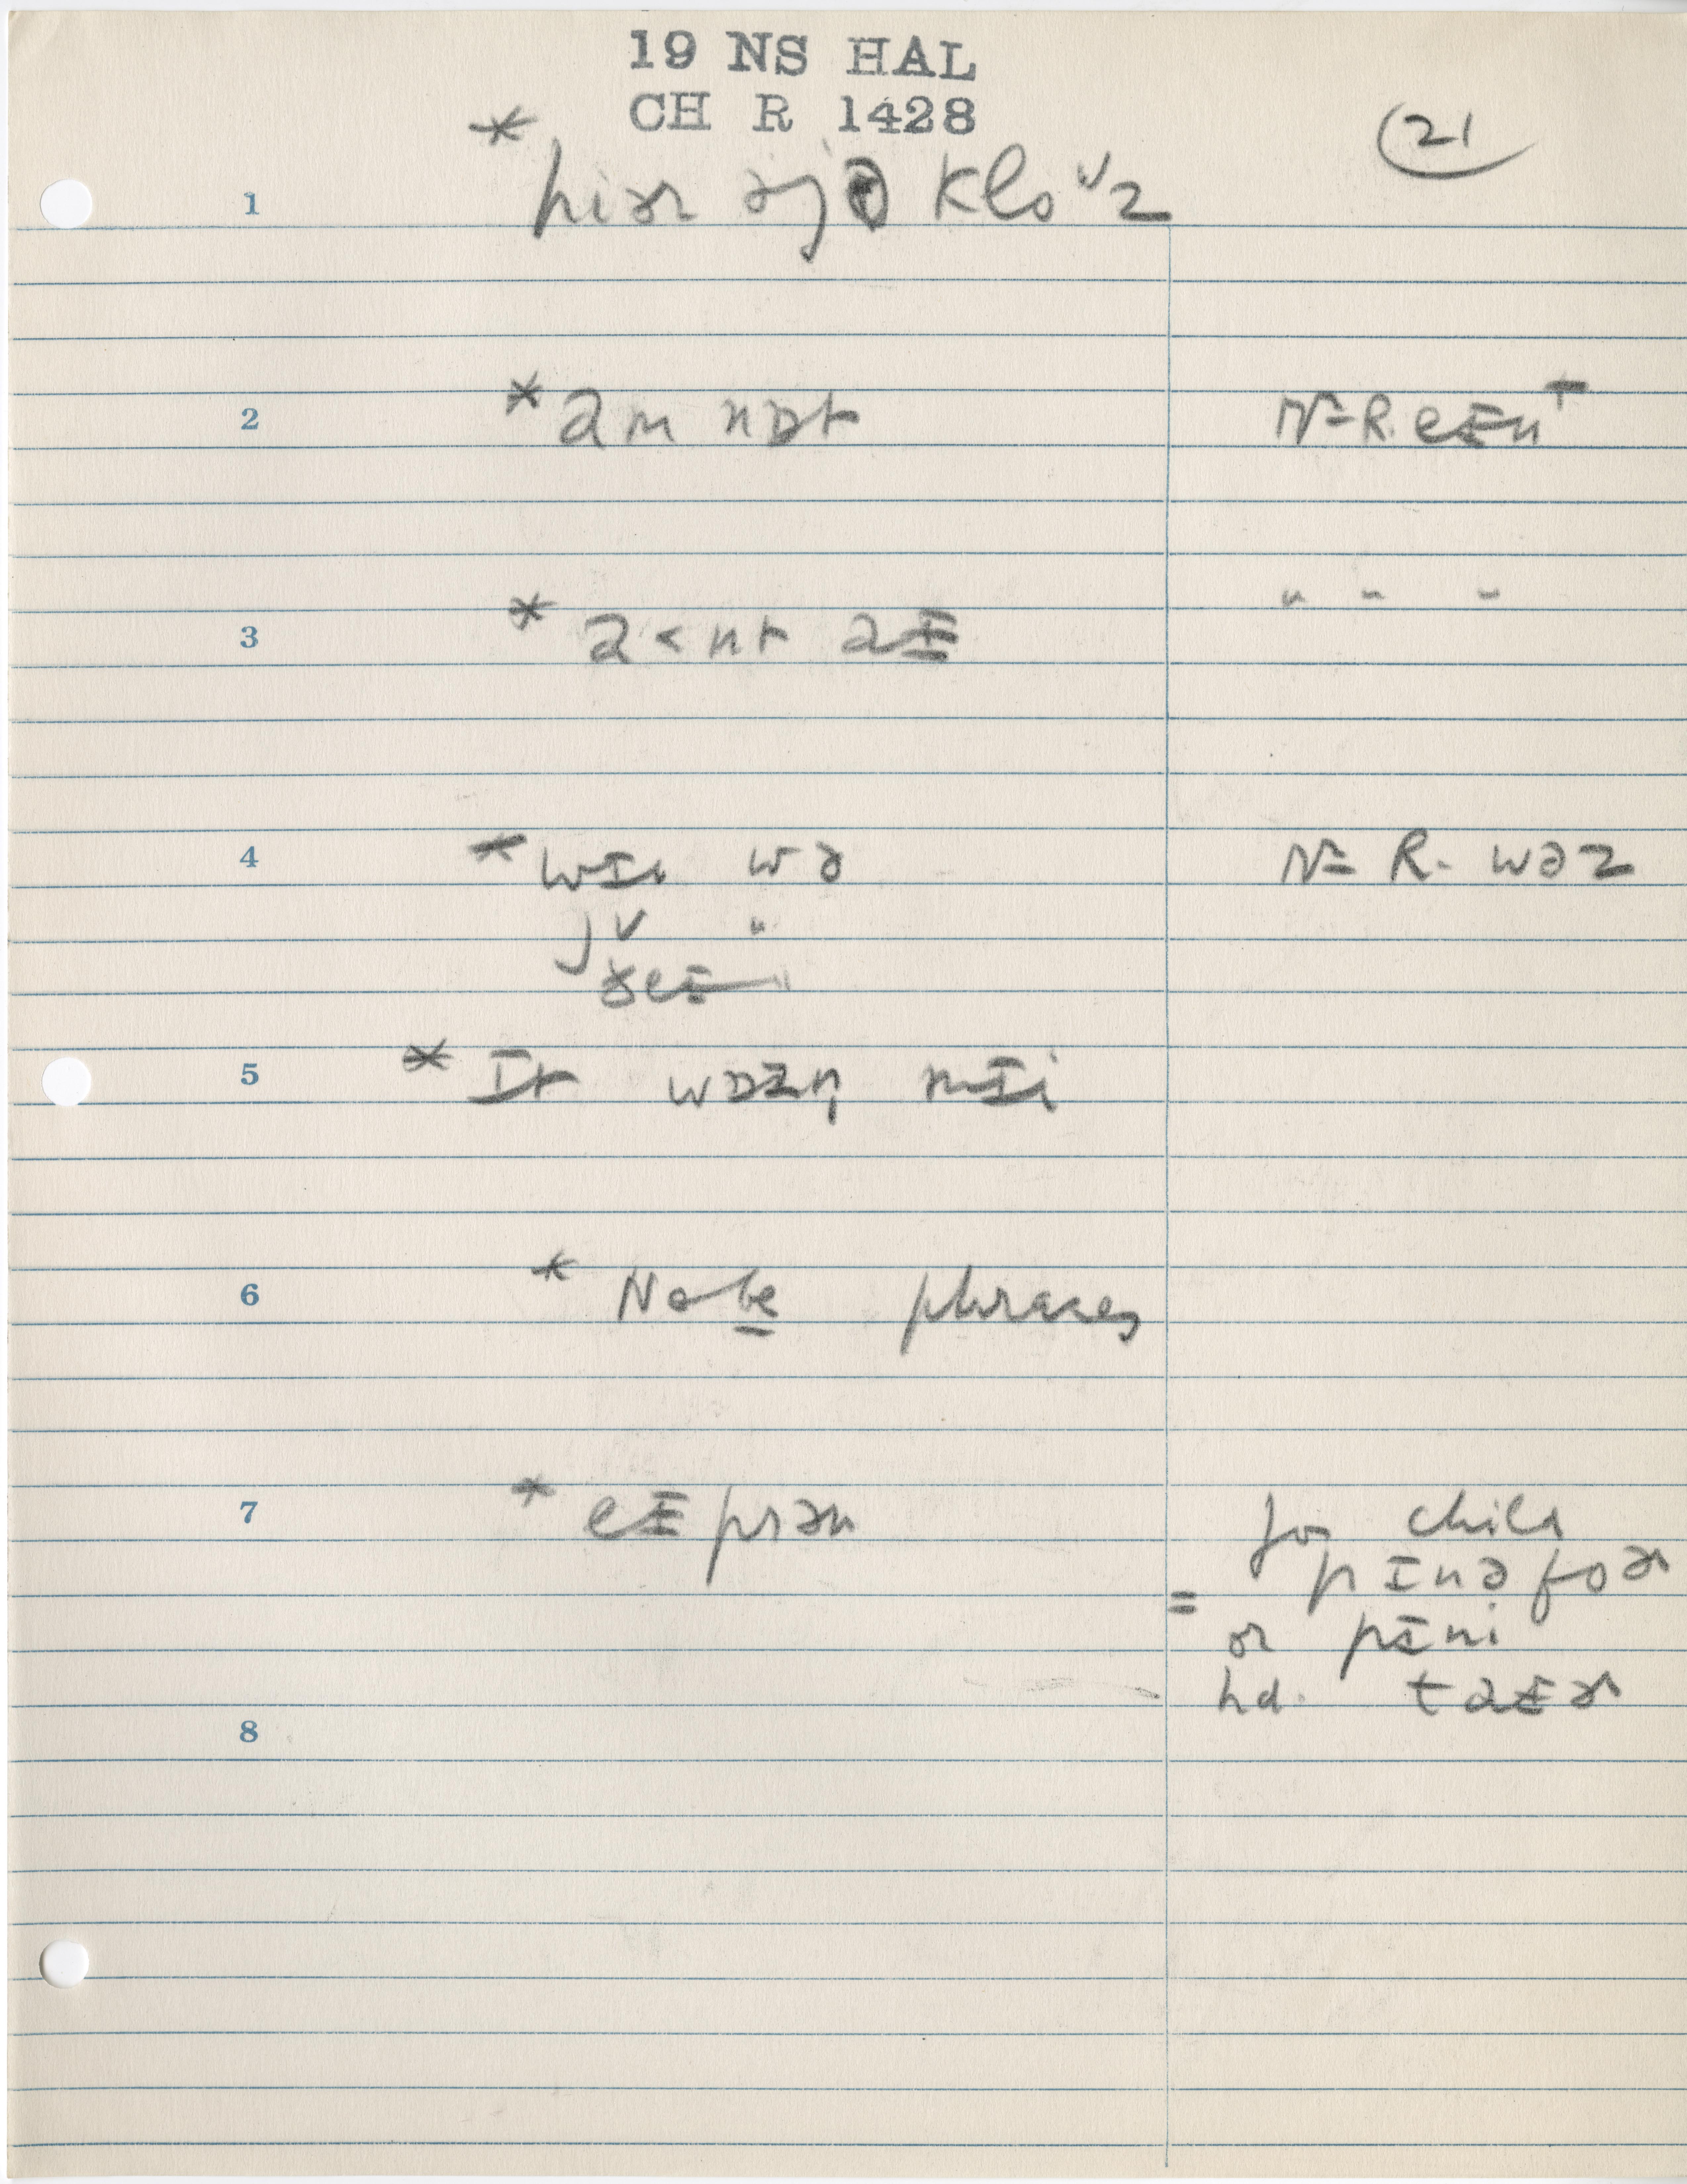 19 NS HAL
CH R 1428
21
1 * hiɚ ɚjə kloᴜz
2 * am nɒt N-R. eɪnt
3 * a<nt aɪ " " "
4 * wɪi wə N-R. wəz
jᴜ "
ðeɪ "
5 * ɪt wɒzn̩ mɪi
6 * No be phrases
7 * eɪprən for child
= pɪnəfoɚ
or pɪni
hd. taɪɚ
8